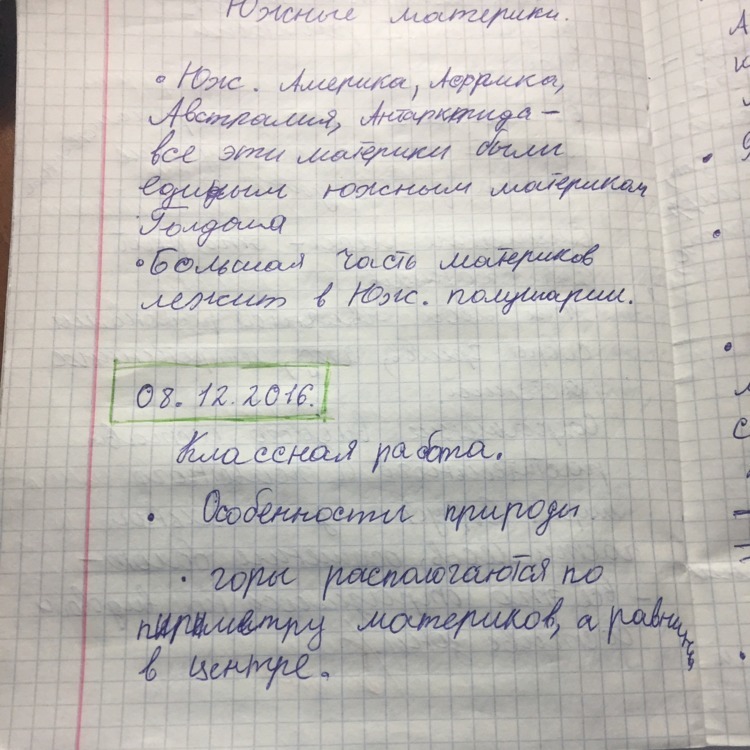 Южные материки.
• Юж. Америка, Африка,
Австралия, Антарктида -
все эти материки были
единым южным материком
Голдона
• Большая часть материков
лежит в Юж. полушарии.
08.12.2016.
Классная работа.
• Особенности природы
• горы распологаются по
периметру материков, а равнины
в центре.